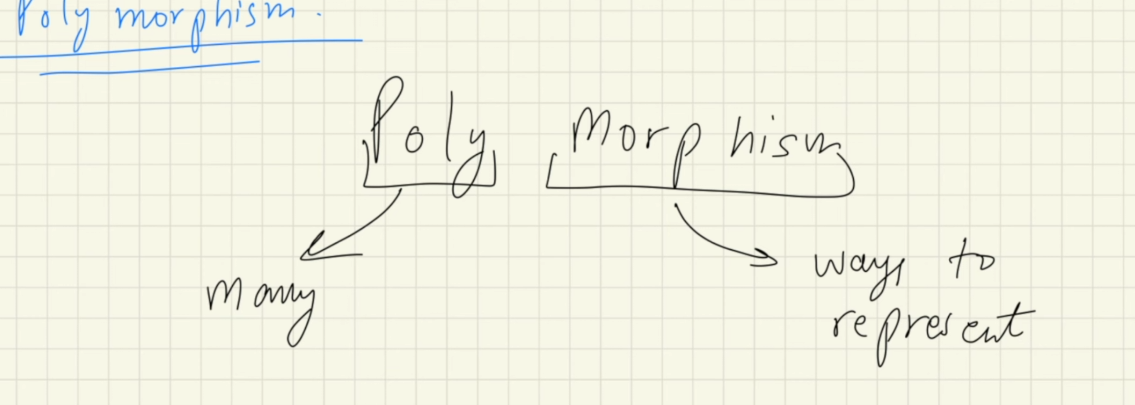 Poly morphism.
Poly Morphism
many
ways to
represent